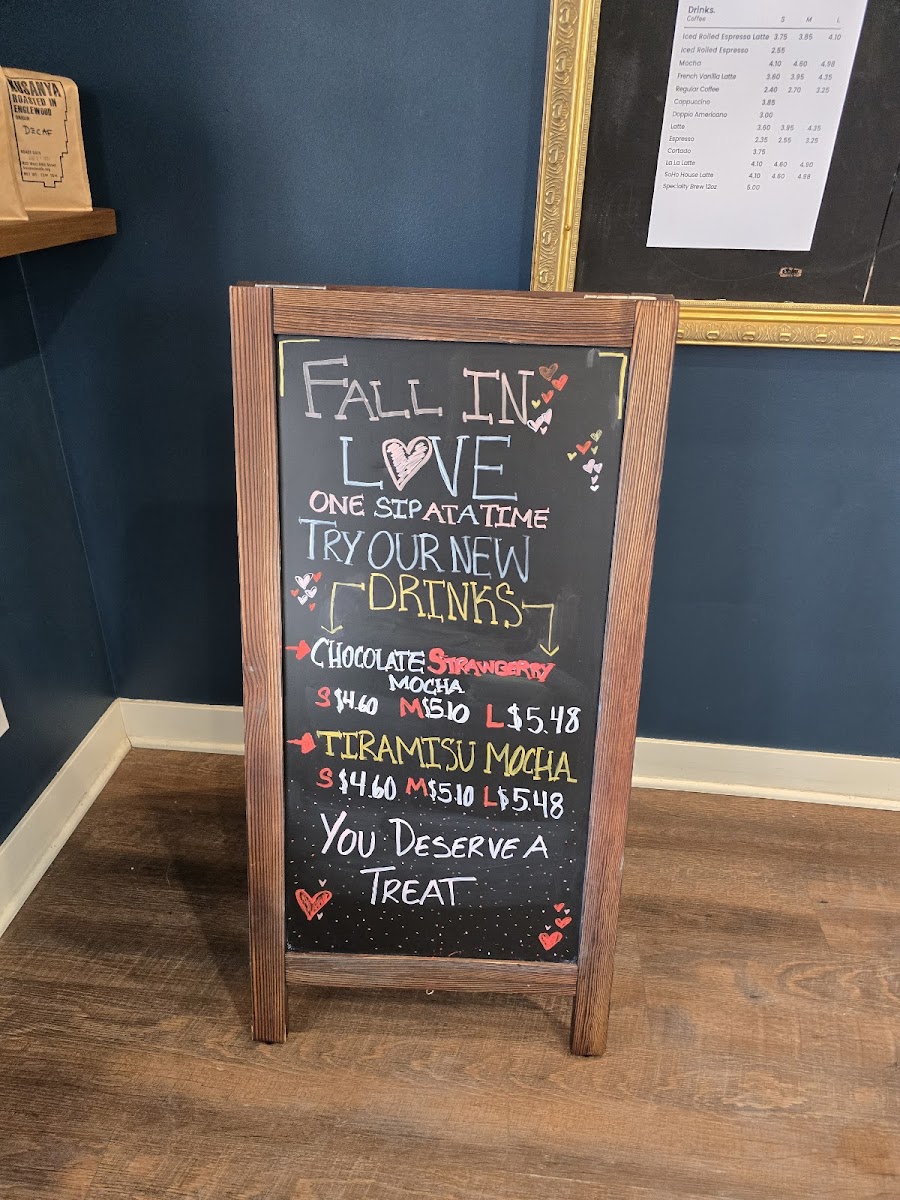 KUSANYA
ROASTED IN
ENGLEWOOD
DECAF
Drinks.
Coffee S M L
Iced Rolled Espresso Latte 3.75 3.85 4.10
Iced Rolled Espresso 2.55
Mocha 4.10 4.60 4.98
French Vanilla Latte 3.60 3.95 4.35
Regular Coffee 2.40 2.70 3.25
Cappuccino 3.85
Doppio Americano 3.00
Latte 3.60 3.95 4.35
Espresso 2.35 2.55 3.25
Cortado 3.75
La La Latte 4.10 4.60 4.90
SoHo House Latte 4.10 4.60 4.98
Specialty Brew 12oz 5.00
FALL IN
LOVE
ONE SIP AT A TIME
TRY OUR NEW
DRINKS
CHOCOLATE STRAWBERRY
MOCHA
S $4.60 M $5.10 L $5.48
TIRAMISU MOCHA
S $4.60 M $5.10 L $5.48
YOU DESERVE A
TREAT